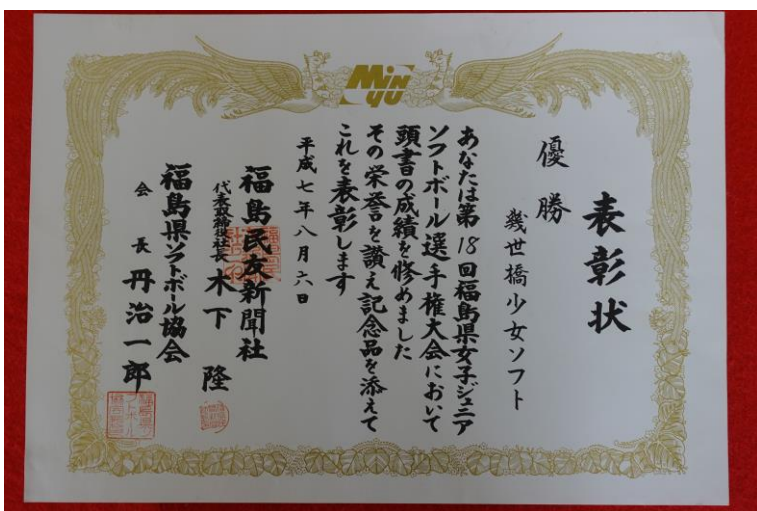 MiNYU
表彰状
優勝
幾世橋少女ソフト
あなたは第18回福島県女子ジュニア
ソフトボール選手権大会において
頭書の成績を修めました
その栄誉を讃え記念品を添えて
これを表彰します
平成七年八月六日
福島民友新聞社
代表取締役社長 木下 隆
福島県ソフトボール協会
会長 丹治一郎